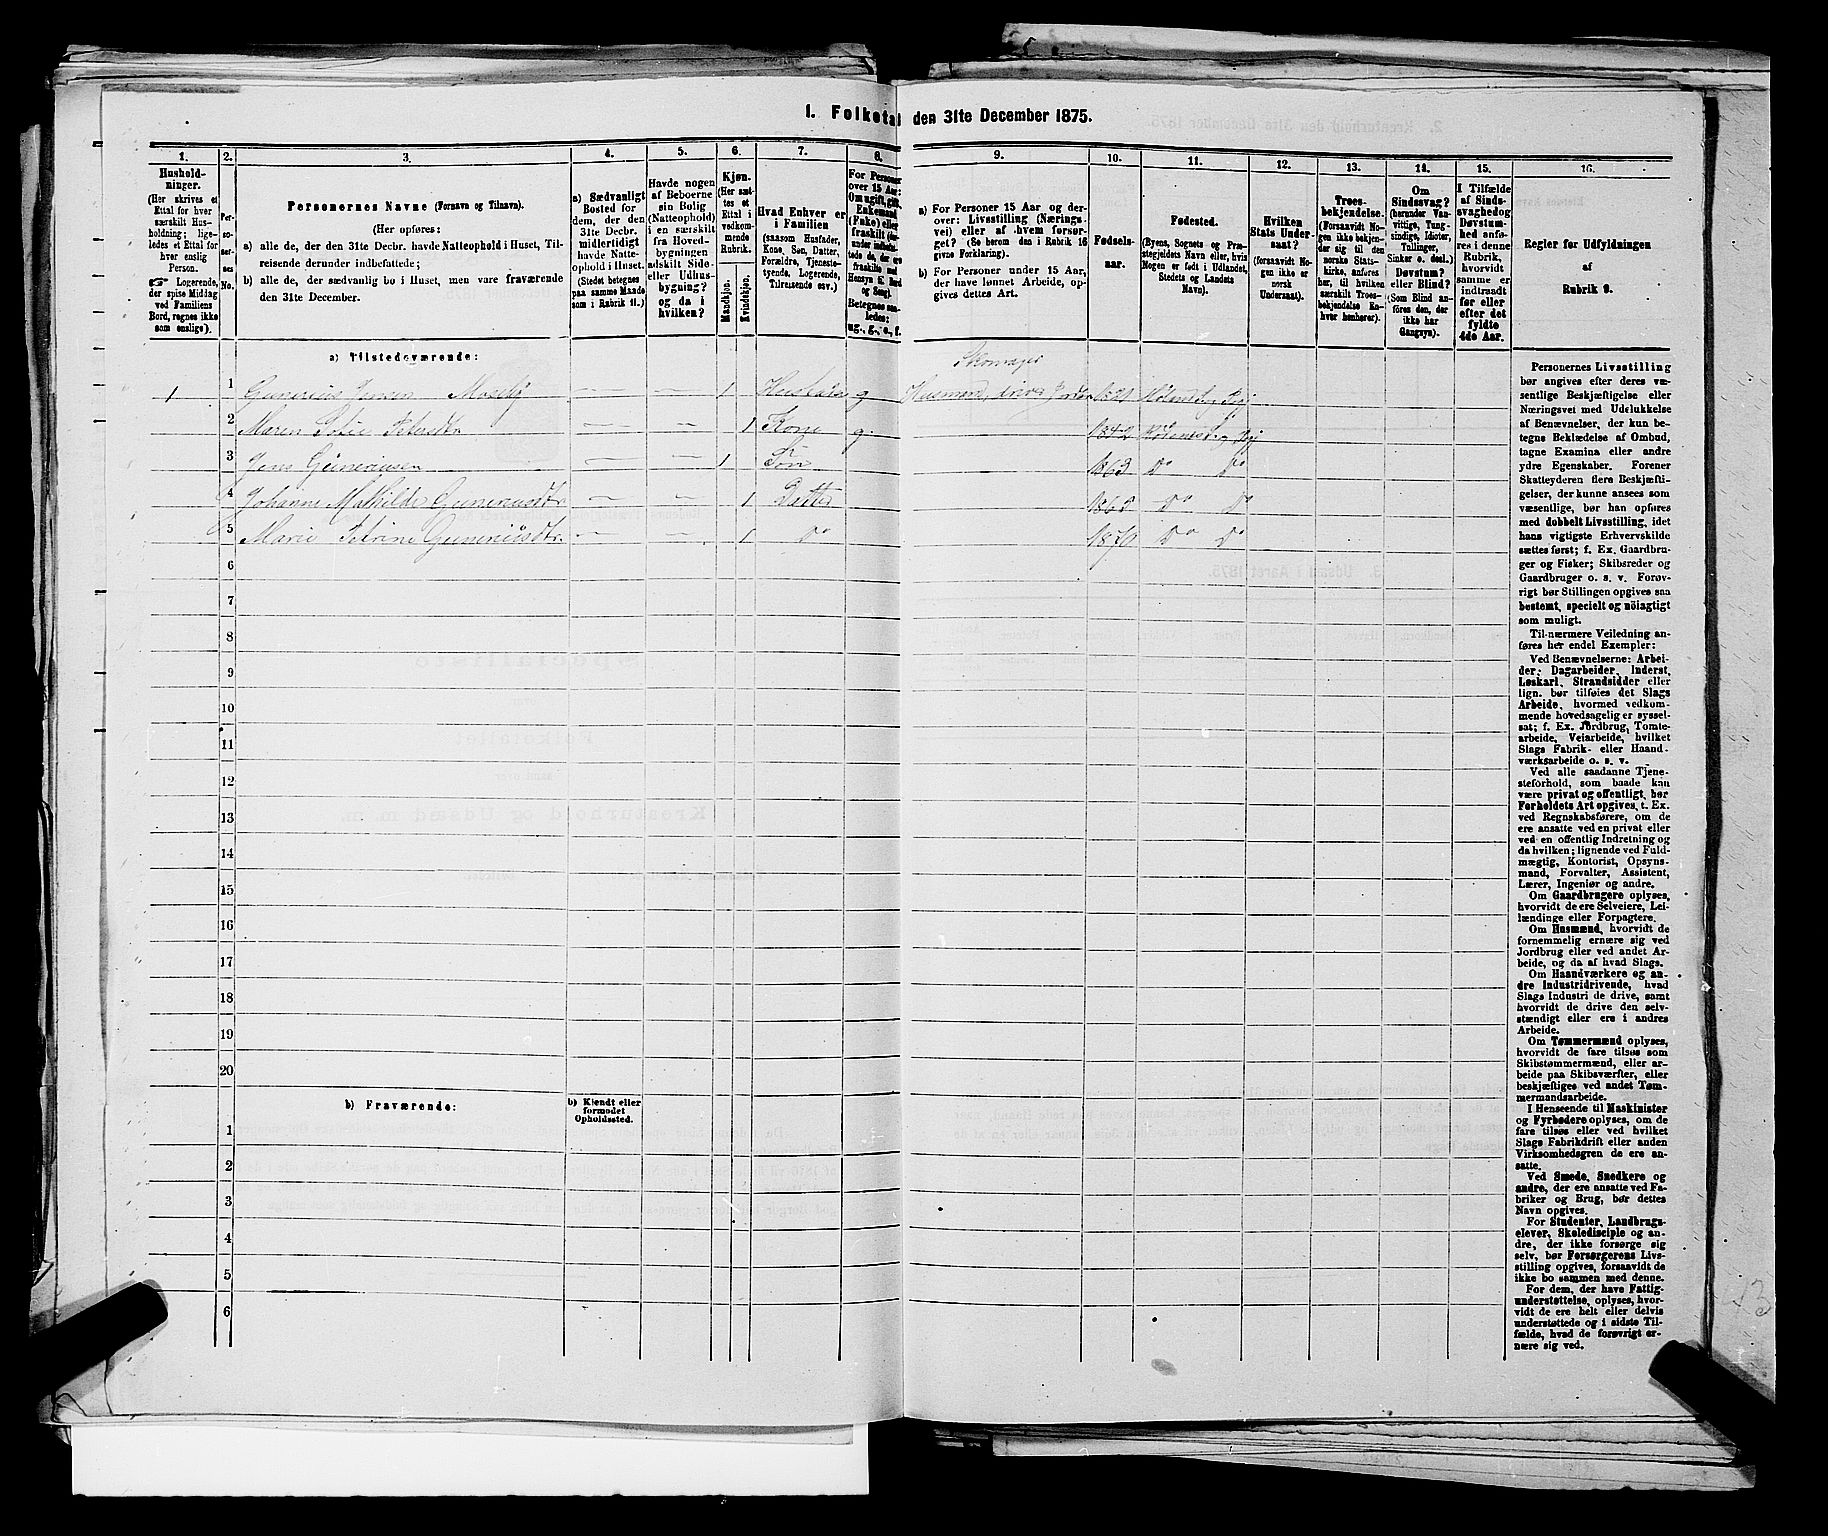 1. Folketal den 31te December 1875.
1.
Hushold-
ninger.
(Her skrives et
Ettal for hver
særskilt Hus-
holdning; lige-
ledes et Ettal for
hver enslig
Person.
Logerende,
der spise Middag
ved Familiens
Bord, regnes ikke
som enslige).
2.
Per-
so-
ner-
nes
No.
3.
Personernes Navne (Fornavn og Tilnavn).
(Her opføres:
a) alle de, der den 31te Decbr. havde Natteophold i Huset, Til-
reisende derunder indbefattede;
b) alle de, der sædvanlig bo i Huset, men vare fraværende
den 31te December.
4.
a) Sædvanligt
Bosted for
dem, der den
31te Decbr.
midlertidigt
havde Natte-
ophold i Huset.
(Stedet betegnes
paa samme Maade
som i Rubrik 11.)
5.
Havde nogen
af Beboerne
sin Bolig
(Natteophold)
i en særskilt
fra Hoved-
bygningen
adskilt Side-
eller Udhus-
bygning?
og da i
hvilken?
6.
Kjøn.
(Her sæt-
tes et
Ettal i
vedkom-
mende
Rubrik.
Mandkjøn.
Kvindekjøn.
7.
Hvad Enhver er
i Familien
(saasom Husfader,
Kone, Søn, Datter,
Forældre, Tjeneste-
tyende, Logerende,
Tilreisende osv.)
8.
For Personer
over 15 Aar:
Om ugift, gift,
Enkemand
(Enke) eller
fraskilt
Betegnes saa-
ledes:
ug., g., e., f.
9.
a) For Personer 15 Aar og der-
over: Livsstilling (Nærings-
vei) eller af hvem forsør-
get? (Se herom den i Rubrik 16
givne Forklaring).
b) For Personer under 15 Aar,
der have lønnet Arbeide, op-
gives dettes Art.
10.
Fødsels-
aar.
11.
Fødested.
(Byens, Sognets og Præ-
stegjeldets Navn eller, hvis
Nogen er født i Udlandet,
Stedets og Landets
Navn).
12.
Hvilken
Stats Under-
saat?
(forsaavidt No-
gen ikke er
norsk
Undersaat).
13.
Troes-
bekjendelse.
(Forsaavidt No-
gen ikke bekjen-
der sig til den
norske Stats-
kirke, anføres
her, til hvilken
særskilt Troes-
bekjendelse En-
hver henhører).
14.
Om
Sindssvag?
(herunder Van-
vittige, Tung-
sindige, Idioter,
Tullinger,
Sinker o. desl.)
Døvstum?
eller Blind?
(Som Blind an-
føres den, der
ikke har
Gangsyn).
15.
I Tilfælde
af Sinds-
svaghed og
Døvstum-
hed anfø-
res i denne
Rubrik,
hvorvidt
samme er
indtraadt
før eller
efter det
fyldte
4de Aar.
16.
Regler for Udfyldningen
af
Rubrik 9.
a) Tilstedeværende:
Skomager
1 1 Gunerius Jensen Moseby — — 1 Husfader g Husmand, 1821
2 Maren Sofie Petersdtr — — 1 Kone g. 1842
3 Jens Guneriusen — — 1 Søn 1863 Do Do
4 Johanne Mathilde Guneriusdtr — — 1 Datter 1865 Do Do
5 Marie Petrine Guneriusdtr. — — 1 Do 1870 Do Do
6
7
8
9
10
11
12
13
14
15
16
17
18
19
20
b) Fraværende:
b) Kjendt eller
formodet
Opholdssted.
1
2
3
4
5
6
Personernes Livsstilling
bør angives efter deres væ-
sentlige Beskjæftigelse eller
Næringsvei med Udelukkelse
af Benævnelser, der kun be-
tegne Beklædelse af Ombud,
tagne Examina eller andre
ydre Egenskaber. Forener
Skatteyderen flere Beskjæfti-
gelser, der kunne ansees som
væsentlige, bør han opføres
med dobbelt Livsstilling, idet
hans vigtigste Erhvervskilde
sættes først; f. Ex. Gaardbru-
ger og Fisker; Skibsreder og
Gaardbruger o. s. v. Forøv-
rigt bør Stillingen opgives saa
bestemt, specielt og nöiagtigt
som muligt.
Til nærmere Veiledning an-
føres her endel Exempler:
Ved Benævnelserne: Arbei-
der, Dagarbeider, Inderst,
Løskarl, Strandsidder eller
lign. bør tilføies det Slags
Arbeide, hvormed vedkom-
mende hovedsagelig er syssel-
sat; f. Ex. Jordbrug, Tomte-
arbeide, Veiarbeide, hvilket
Slags Fabrik- eller Haand-
værksarbeide o. s. v.
Ved alle saadanne Tjene-
steforhold, som baade kan
være privat og offentligt, bør
Forholdets Art opgives, t. Ex.
ved Regnskabsførere, om de
ere ansatte ved en privat eller
ved en offentlig Indretning og
da hvilken; lignende ved Fuld-
mægtig, Kontorist, Opsyns-
mand, Forvalter, Assistent,
Lærer, Ingeniør og andre.
Om Gaardbrugere oplyses,
hvorvidt de ere Selveiere, Lei-
lændinge eller Forpagtere.
Om Husmænd, hvorvidt de
fornemmelig ernære sig ved
Jordbrug eller ved andet Ar-
beide, og da af hvad Slags.
Om Haandværkere og an-
dre Industridrivende, hvad
Slags Industri de drive, samt
hvorvidt de drive den selv-
stændigt eller ere i andres
Arbeide.
Om Tømmermænd oplyses,
hvorvidt de fare tilsøs som
Skibstømmermænd, eller ar-
beide paa Skibsværfter, eller
beskjæftiges ved andet Tøm-
mermandsarbeide.
I Henseende til Maskinister
og Fyrbødere oplyses, om de
fare tilsøs eller ved hvilket
Slags Fabrikdrift eller anden
Virksomhedsgren de ere an-
satte.
Ved Smede, Snedkere og
andre, der ere ansatte ved Fa-
briker og Brug, bør dettes
Navn opgives.
For Studenter, Landbrugs-
elever, Skoledisciple og an-
dre, der ikke forsørge sig
selv, bør Forsørgerens Livs-
stilling opgives, forsaavidt de
ikke bo sammen med denne.
For dem, der have Fattig-
understøttelse, oplyses, hvor-
vidt de ere helt eller delvis
understøttede og i sidste Til-
fælde, hvad de forøvrigt er-
nære sig ved.